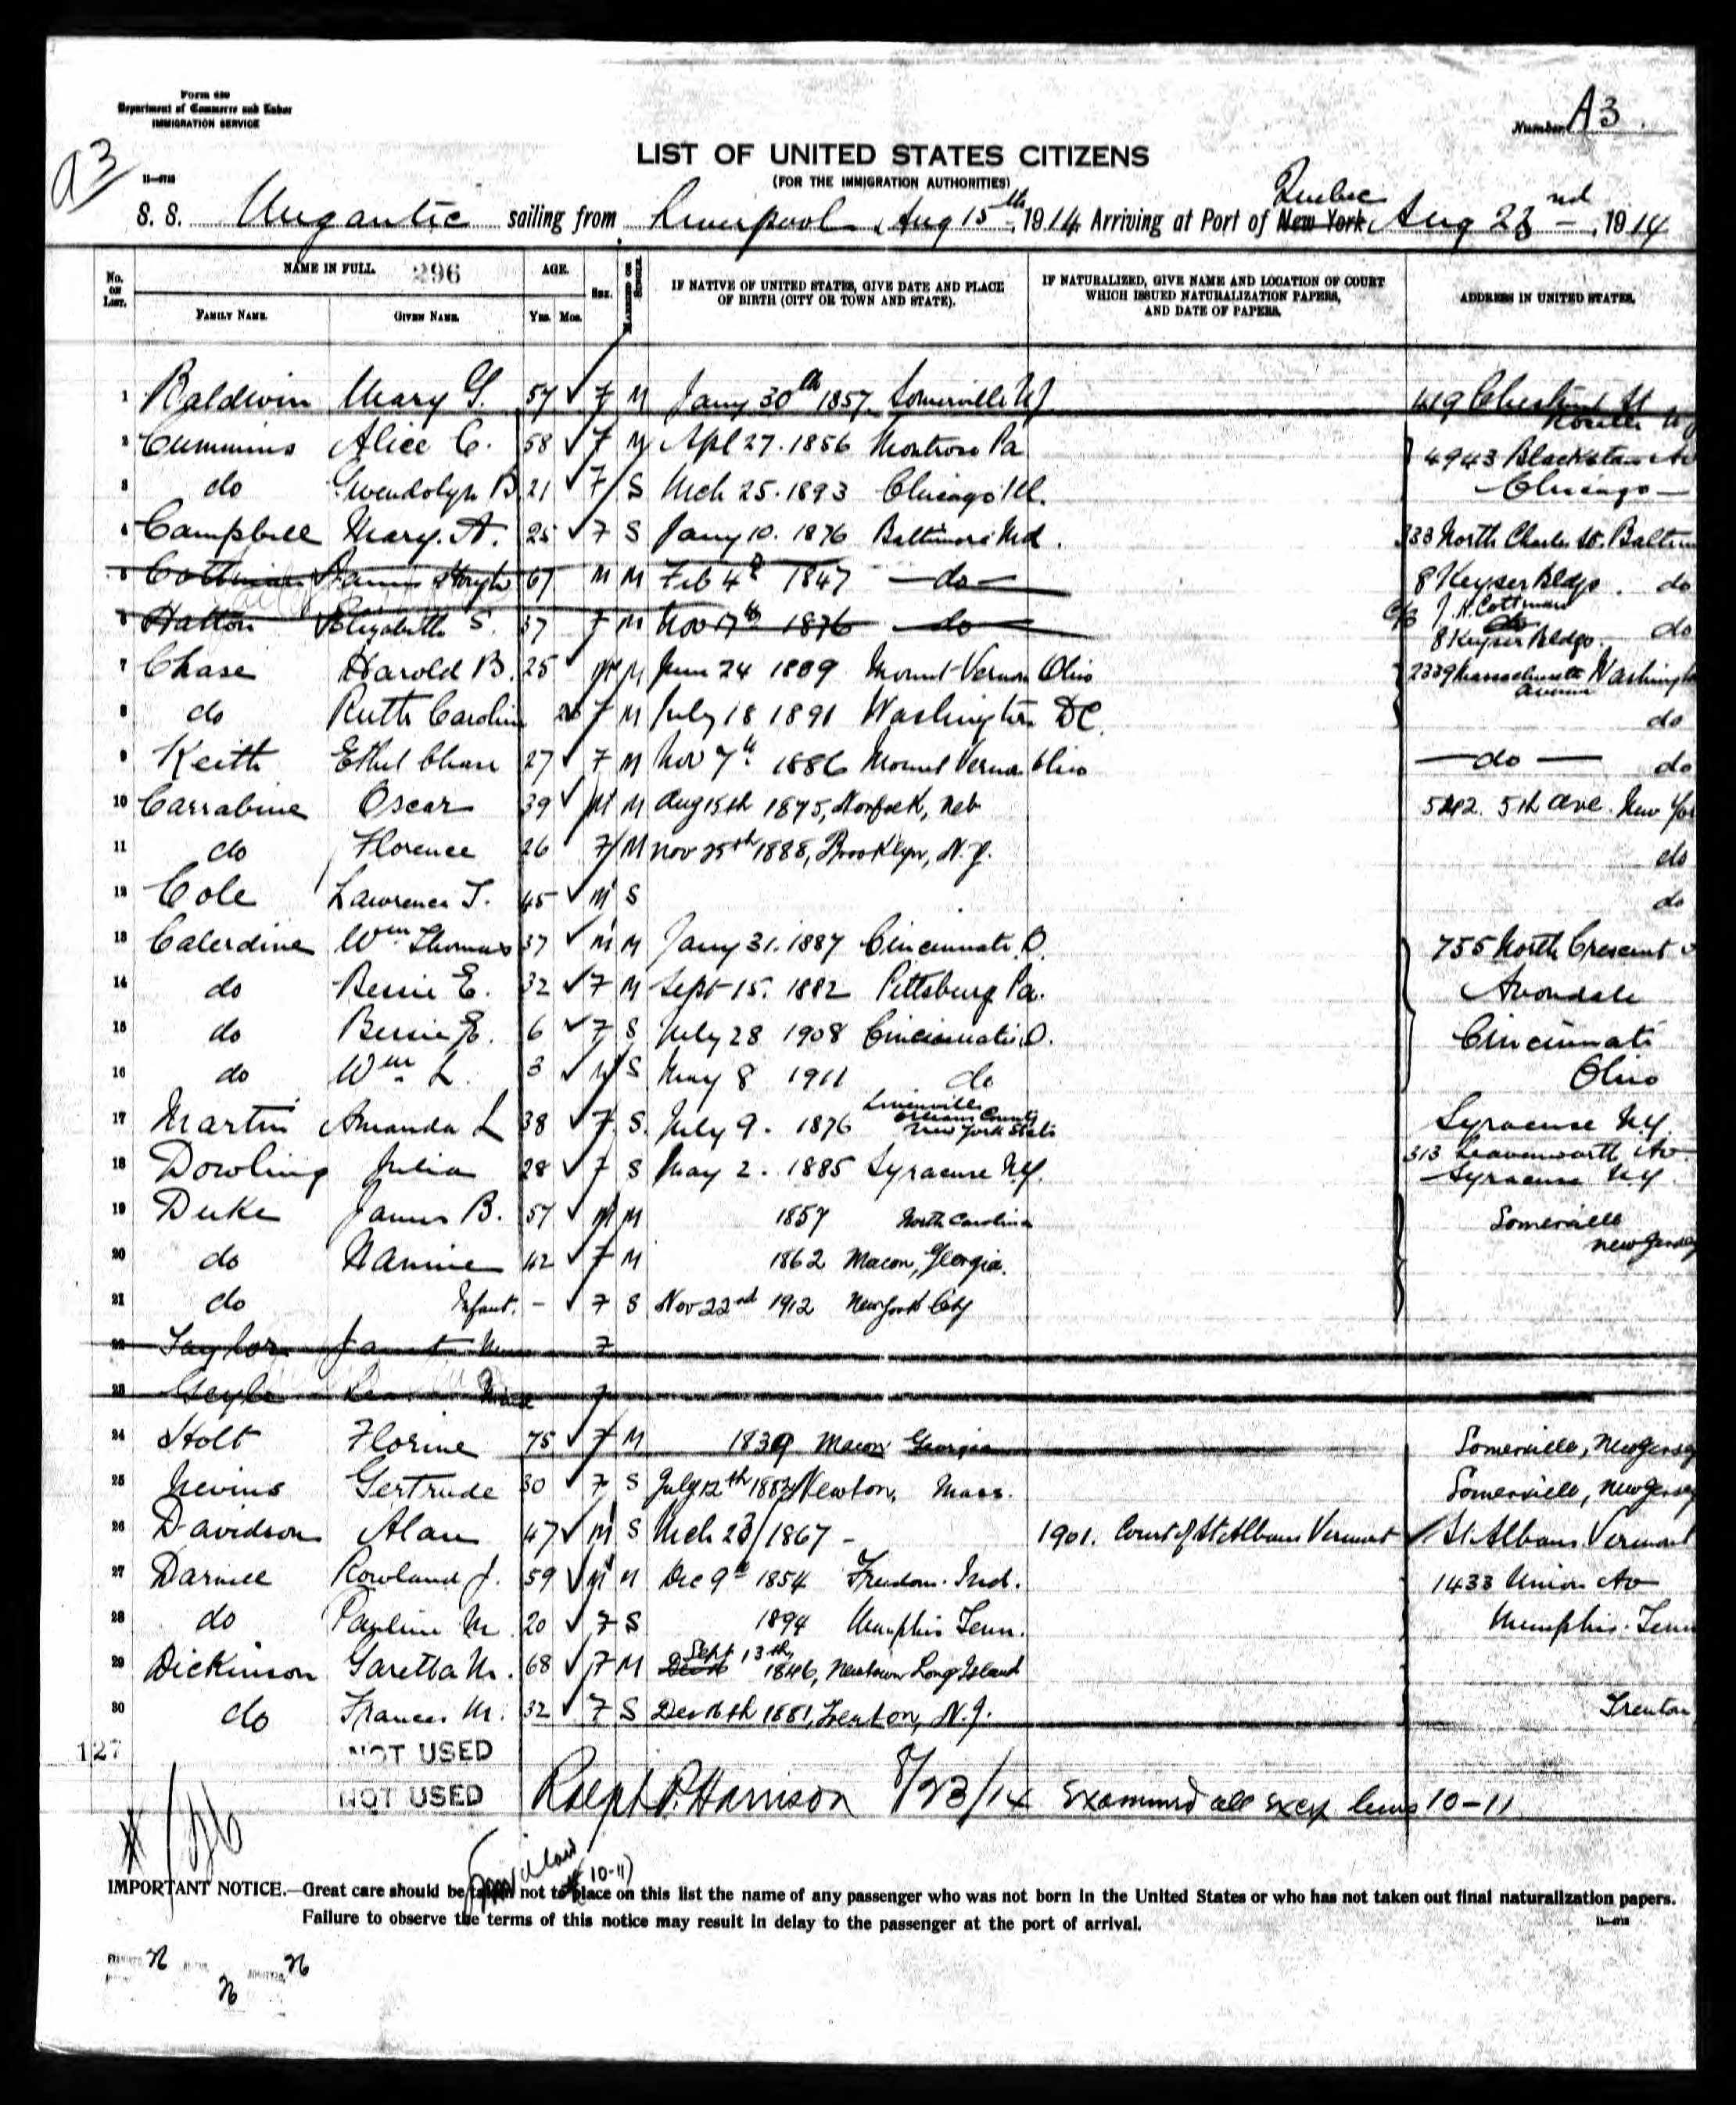 Form 630
Department of Commerce and Labor
IMMIGRATION SERVICE
Number A3
a3
LIST OF UNITED STATES CITIZENS
(FOR THE IMMIGRATION AUTHORITIES)
S. S. Megantic sailing from Liverpool, Aug 15th, 1914 Arriving at Port of New York Quebec Aug 23 nd, 1914
No. on List. NAME IN FULL. 296 AGE. SEX. MARRIED OR SINGLE. IF NATIVE OF UNITED STATES, GIVE DATE AND PLACE OF BIRTH (CITY OR TOWN AND STATE). IF NATURALIZED, GIVE NAME AND LOCATION OF COURT WHICH ISSUED NATURALIZATION PAPERS, AND DATE OF PAPERS. ADDRESS IN UNITED STATES.
FAMILY NAME. GIVEN NAME. Yrs. Mos.
1 Baldwin Mary G. 57 F M Jany 30th 1857 Somerville NJ 419 Chestnut St Roselle NJ
2 Cummins Alice C. 58 F M Apl 27. 1856 Montrose Pa 4943 Blackstone Av
3 do Gwendolyn B. 21 F S Mch 25. 1893 Chicago Ill. Chicago
4 Campbell Mary. A. 25 F S Jany 10. 1876 Baltimore Md. 333 North Charles St. Baltim
5 Cottman James Hough 67 M M Feb 4th 1847 do 8 Keyser Bldg. do
6 Hatton Elizabeth S. 37 F M Nov 17th 1876 do c/o J. H. Cottman 8 Keyser Bldg. do
7 Chase Harold B. 25 M M June 24 1889 Mount Vernon Ohio 2339 Massachusetts Avenue Washingto
8 do Ruth Carolin F M July 18 1891 Washington DC. do
9 Keith Ethel Chase 27 F M Nov 7th 1886 Mount Vernon Ohio do do
10 Carrabine Oscar 39 M M Aug 15th 1875, Norfolk, Neb 542. 5th Ave. New Yor
11 do Florence 26 F M Nov 25th 1888, Brooklyn, N.Y. do
12 Cole Lawrence T. 45 M S do
13 Calerdine Wm Thomas 37 M M Jany 31. 1887 Cincinnati O. 755 North Crescent
14 do Bessie E. 32 F M Sept 15. 1882 Pittsburg Pa. Avondale
15 do Bessie E. 6 F S July 28 1908 Cincinnati O. Cincinnati
16 do Wm L. 3 M S May 8 1911 do Ohio
17 Martin Amanda L 38 F S. July 9. 1876 Orleans County New York State Syracuse N.Y.
18 Dowling Julia 28 F S May 2. 1885 Syracuse N.Y. 313 Leavenworth Av. Syracuse N.Y.
19 Duke James B. 57 M M 1857 North Carolina Somerville New Jersey
20 do Nanine 42 F M 1862 Macon, Georgia.
21 do Infant. - F S Nov 22nd 1912 New York City
22 Taylor Janet F
23 F
24 Holt Florine 75 F M 1839 Macon Georgia Somerville, New Jersey
25 Nevins Gertrude 30 F S July 12th 1884 Newton, Mass. Somerville, New Jersey
26 Davidson Alan 47 M S Mch 23/1867 - 1901. Court of St Albans Vermont St Albans Vermont
27 Darnell Rowland J. 59 M M Dec 9th 1854 Freedom. Ind. 1433 Union Av
28 do Pauline M 20 F S 1894 Memphis Tenn. Memphis. Tenn
29 Dickinson Garetta M. 68 F M Sept 13th, 1846, Newtown Long Island
30 do Frances M. 32 F S Dec 16th 1881, Trenton, N.J. Trenton
127 NOT USED
NOT USED Ralph P. Harrison 8/23/14 Examined all except lines 10-11
10-11)
IMPORTANT NOTICE.—Great care should be taken not to place on this list the name of any passenger who was not born in the United States or who has not taken out final naturalization papers.
Failure to observe the terms of this notice may result in delay to the passenger at the port of arrival.